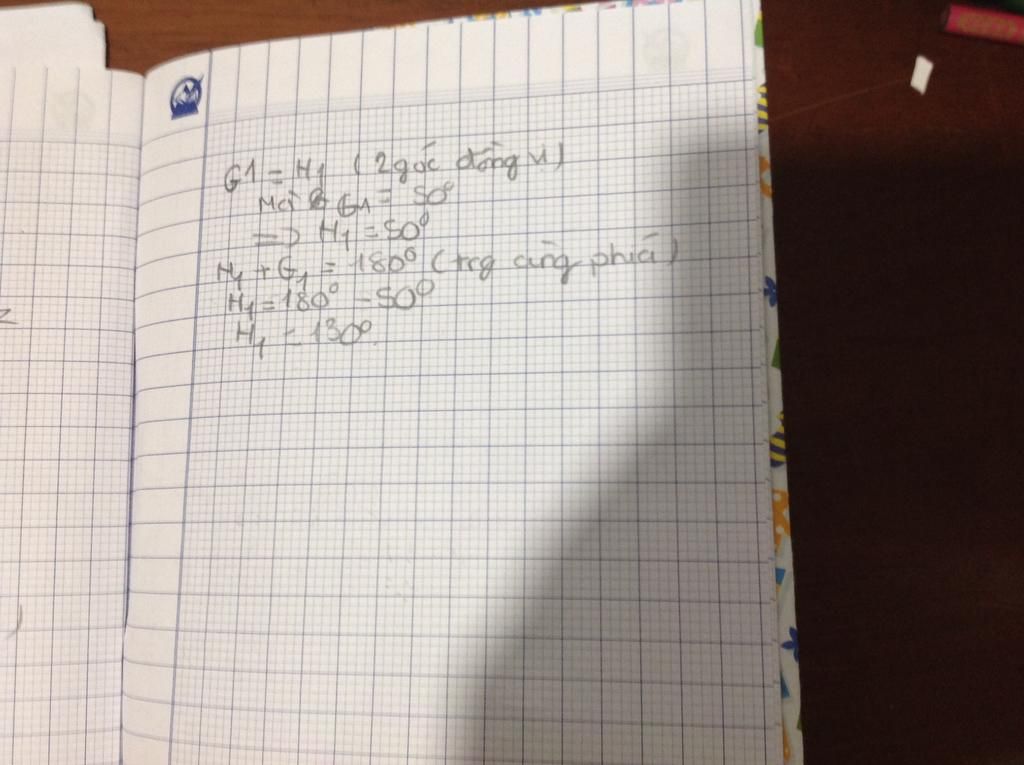 G1 = H1 ( 2 góc đồng vị )
Mà G1 = 50°
=> H1 = 50°
H1 + G1 = 180° ( trg cùng phía )
H1 = 180° - 50°
H1 = 130°.
z
)